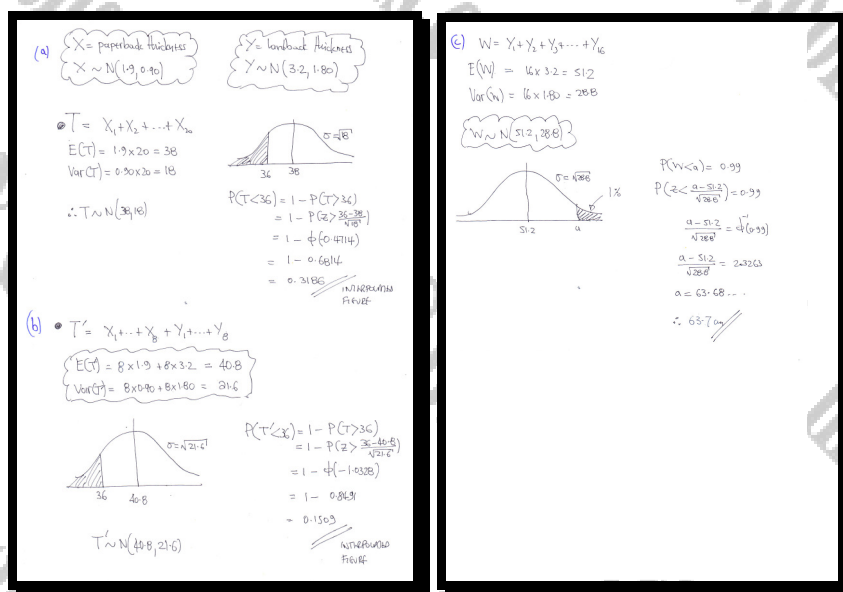 (a)
X = paperback thickness
X ~ N(1.9, 0.90)
Y = hardback thickness
Y ~ N(3.2, 1.80)
• T = X₁+X₂+...+X₂₀
E(T) = 1.9×20 = 38
Var(T) = 0.90×20 = 18
∴ T ~ N(38,18)
σ=√18
36 38
P(T<36) = 1 - P(T>36)
= 1 - P(z > (36-38)/√18)
= 1 - ϕ(-0.4714)
= 1 - 0.6814
= 0.3186
INTERPOLATED
FIGURE
(b)
• T' = X₁+...+X₈ + Y₁+...+Y₈
E(T') = 8×1.9 + 8×3.2 = 40.8
Var(T') = 8×0.90 + 8×1.80 = 21.6
σ=√21.6
36 40.8
T' ~ N(40.8, 21.6)
P(T'<36) = 1 - P(T>36)
= 1 - P(z > (36-40.8)/√21.6)
= 1 - ϕ(-1.0328)
= 1 - 0.8491
= 0.1509
INTERPOLATED
FIGURE
(c)
W = Y₁+Y₂+Y₃+...+Y₁₆
E(W) = 16×3.2 = 51.2
Var(W) = 16×1.80 = 28.8
W ~ N(51.2, 28.8)
σ=√28.8
1%
51.2 a
P(W<a) = 0.99
P(z < (a-51.2)/√28.8) = 0.99
(a-51.2)/√28.8 = ϕ⁻¹(0.99)
(a-51.2)/√28.8 = 2.3263
a = 63.68....
∴ 63.7 cm